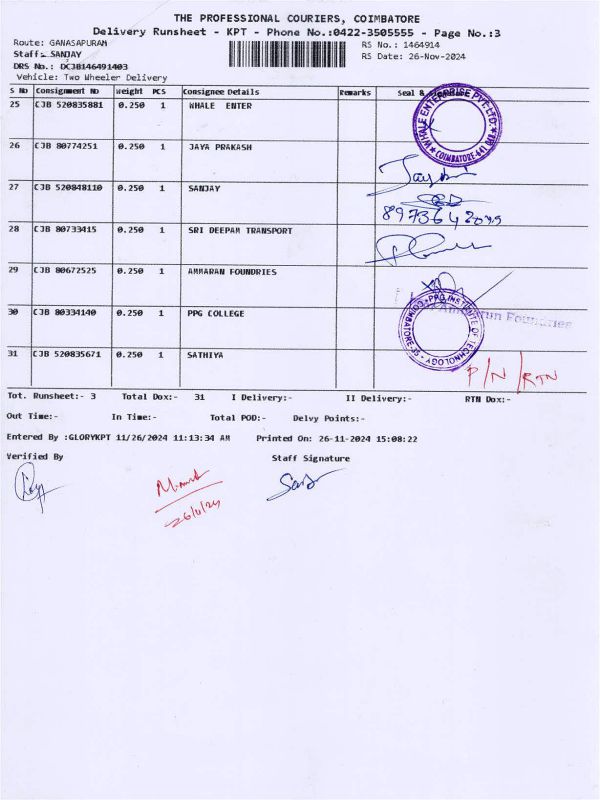 THE PROFESSIONAL COURIERS, COIMBATORE
Delivery Runsheet - KPT - Phone No.:0422-3505555 - Page No.:3
Route: GANASAPURAM RS No.: 1464914
Staff:- SANJAY RS Date: 26-Nov-2024
DRS No.: DCJB146491403
Vehicle: Two Wheeler Delivery
S No Consignment No Weight PCS Consignee Details Remarks Seal &
25 CJB 520835881 0.250 1 WHALE ENTER
WHALE ENTERPRISE PVT.LTD.
COIMBATORE-641
26 CJB 80774251 0.250 1 JAYA PRAKASH
27 CJB 520848110 0.250 1 SANJAY
28 CJB 80733415 0.250 1 SRI DEEPAM TRANSPORT
29 CJB 80672525 0.250 1 AMMARAN FOUNDRIES
Foundries
30 CJB 80334140 0.250 1 PPG COLLEGE
PPG INSTITUTE OF TECHNOLOGY
COIMBATORE-35
31 CJB 520835671 0.250 1 SATHIYA
P/N/RTN
Tot. Runsheet:- 3 Total Dox:- 31 I Delivery:- II Delivery:- RTN Dox:-
Out Time:- In Time:- Total POD:- Delvy Points:-
Entered By :GLORYKPT 11/26/2024 11:13:34 AM Printed On: 26-11-2024 15:08:22
Verified By Staff Signature
26/11/24